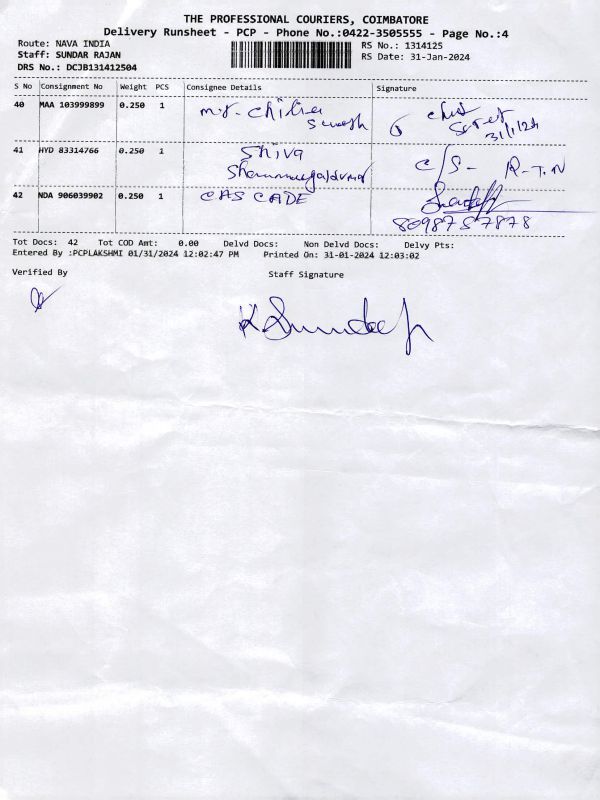 THE PROFESSIONAL COURIERS, COIMBATORE
Delivery Runsheet - PCP - Phone No.:0422-3505555 - Page No.:4
Route: NAVA INDIA
RS No.: 1314125
Staff: SUNDAR RAJAN
RS Date: 31-Jan-2024
DRS No.: DCJB131412504
S No Consignment No Weight PCS Consignee Details Signature
40 MAA 103999899 0.250 1
31/1/24
41 HYD 83314766 0.250 1 Shiva
C/S- R-T.N
42 NDA 906039902 0.250 1 CASCADE
8098757878
Tot Docs: 42 Tot COD Amt: 0.00 Delvd Docs: Non Delvd Docs: Delvy Pts:
Entered By :PCPLAKSHMI 01/31/2024 12:02:47 PM Printed On: 31-01-2024 12:03:02
Verified By Staff Signature
K. Sundeep